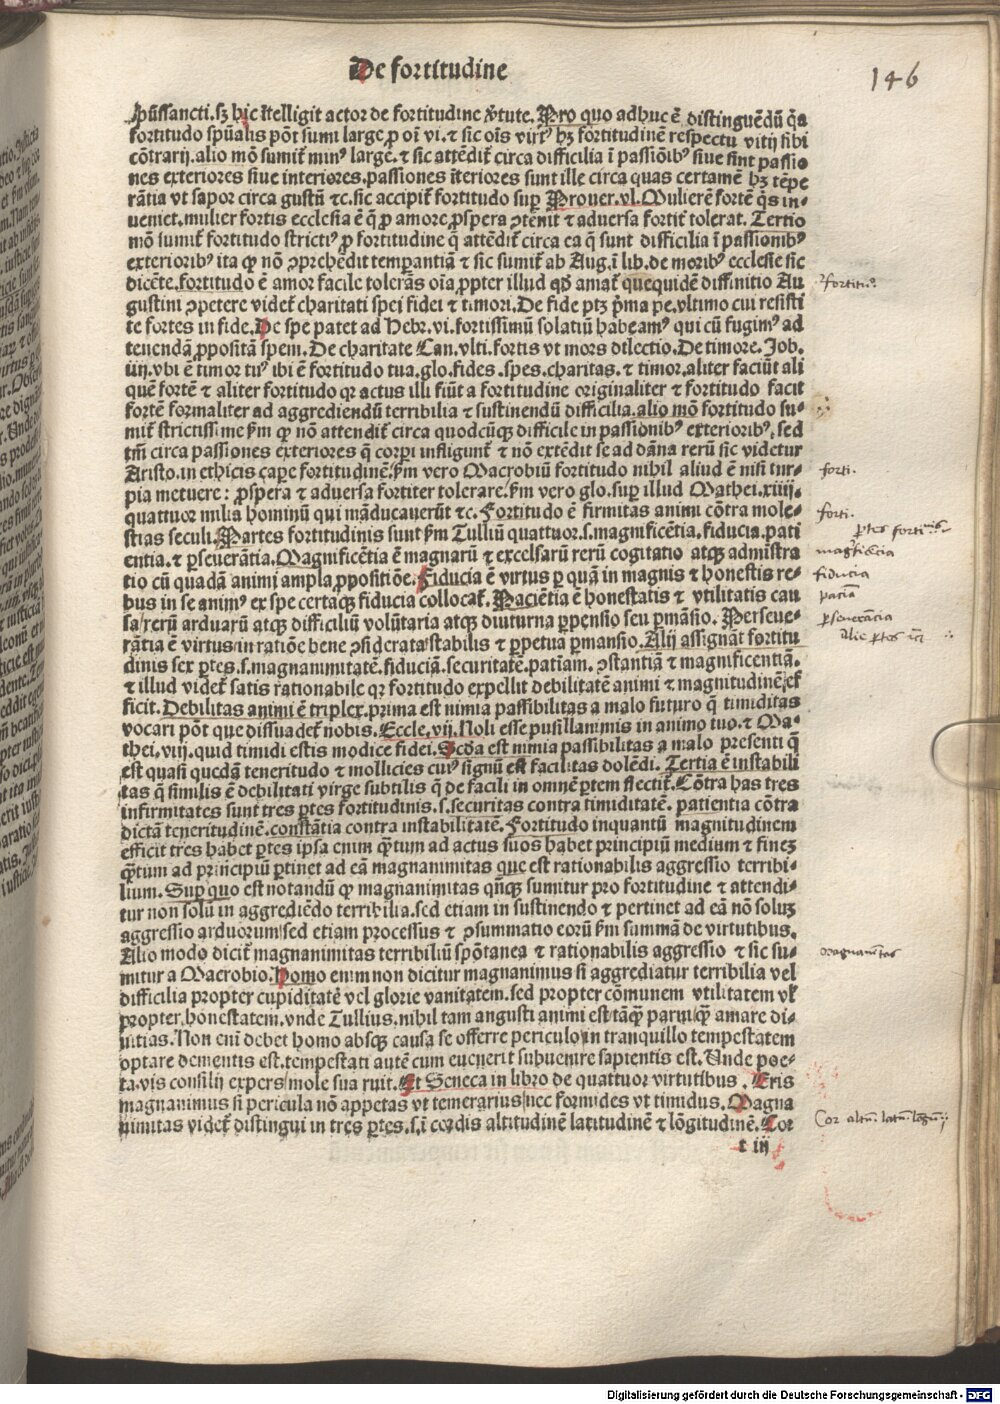 De fortitudine
146
spūssancti. sꝫ hic ītelligit actor de fortitudine v̓tute. Pro quo adhuc ē distinguēdū q̄a
fortitudo spūalis pōt sumi large ꝓ oī vi. ⁊ sic oīs virtꝰ hꝫ fortitudinē respectu vitij sibi
cōtrarij. alio mō sumit̄ minꝰ large. ⁊ sic attēdit̄ circa difficilia ī passiōibꝰ siue sint passio
nes exteriores siue interiores. passiones īteriores sunt ille circa quas certamē hꝫ tēpe
rātia vt sapor circa gustū ⁊c. sic accipit̄ fortitudo suꝑ Prouer. vl. Mulierē fortē q̇s in-
ueniet. mulier fortis ecclesia ē q̄ ꝓ amore ꝓspera ꝯtēnit ⁊ aduersa fortit̓ tolerat. Tertio
mō sumit̄ fortitudo strictiꝰ ꝓ fortitudine q̄ attēdit̄ circa ea q̄ sunt difficilia ī passionibꝰ
exterioribꝰ ita ꝙ nō ꝯprehēdit temꝑantiā ⁊ sic sumit̄ ab Aug. ī lib. de moribꝰ ecclesie sic
dicēte. fortitudo ē amor facile tolerās oīa ꝓpter illud qd̄ amat̄ quequidē diffinitio Au
gustini ꝯpetere videt̄ charitati spei fidei ⁊ timori. De fide ptꝫ p̄ma pe. vltimo cui resisti
te fortes in fide. De spe patet ad Hebr. vi. fortissimū solatiū habeamꝰ qui cū fugimꝰ ad
tenendā ꝓpositā spem. De charitate Can. vlti. fortis vt mors dilectio. De timore. Job.
iiij. vbi ē timor tuꝰ ibi ē fortitudo tua. glo. fides. spes. charitas. ⁊ timor. aliter faciūt ali
quē fortē ⁊ aliter fortitudo qr actus illi fiūt a fortitudine originaliter ⁊ fortitudo facit
fortē formaliter ad aggrediendū terribilia ⁊ sustinendū difficilia. alio mō fortitudo su-
mit̄ strictissime fm̄ ꝙ nō attendit̄ circa quodcūqꝫ difficile in passionibꝰ exterioribꝰ, sed
tm̄ circa passiones exteriores q̄ corpi infligunt̄ ⁊ nō extēdit se ad dāna rerū sic videtur
Aristo. in ethicis capere fortitudinē. fm̄ vero Macrobiū fortitudo nihil aliud ē nisi tur-
pia metuere : ꝓspera ⁊ aduersa fortiter tolerare. fm̄ vero glo. suꝑ illud Mathei. xiiij.
quattuor milia hominū qui māducauerūt ⁊c. Fortitudo ē firmitas animi cōtra mole-
stias seculi. Partes fortitudinis sunt fm̄ Tulliū quattuor. s. magnificētia. fiducia. pati
entia. ⁊ ꝑseuerātia. Magnificētia ē magnarū ⁊ excelsarū rerū cogitatio atqꝫ admīstra
tio cū quadā animi ampla ꝓpositiōe. Fiducia ē virtus ꝑ quā in magnis ⁊ honestis re-
bus in se animꝰ ex spe certaqꝫ fiducia collocat̄. Paciētia ē honestatis ⁊ vtilitatis cau
sa rerū arduarū atqꝫ difficiliū volūtaria atqꝫ diuturna ꝑpensio seu ꝑmāsio. Perseue-
rātia ē virtus in ratiōe bene ꝯsiderata stabilis ⁊ ꝑpetua ꝑmansio. Alij assignāt fortitu
dinis sex ꝑtes. s. magnanimitatē. fiduciā. securitatē. patiam. ꝯstantiā ⁊ magnificentiā.
⁊ illud videt̄ satis rationabile qr fortitudo expellit debilitatē animi ⁊ magnitudinē ef
ficit. Debilitas animi ē triplex. prima est nimia passibilitas a malo futuro q̄ timiditas
vocari pōt que dissuadet̄ nobis. Eccle. vij. Noli esse pusillanimis in animo tuo. ⁊ Ma-
thei. viij. quid timidi estis modice fidei. Scda est nimia passibilitas a malo presenti q̄
est quasi quedā teneritudo ⁊ mollicies cuiꝰ signū est facilitas dolēdi. Tertia ē instabili
tas q̄ similis ē debilitati virge subtilis q̄ de facili in omnē ꝑtem flectit̄. Cōtra has tres
infirmitates sunt tres ꝑtes fortitudinis. s. securitas contra timiditatē. patientia cōtra
dictā teneritudinē. constātia contra instabilitatē. Fortitudo inquantū magnitudinem
efficit tres habet ꝑtes ipsa enim quātum ad actus suos habet principiū medium ⁊ fineꝫ
quātum ad principiū ꝑtinet ad eā magnanimitas que est rationabilis aggressio terribi-
lium. Suꝑ quo est notandū ꝙ magnanimitas qn̄qꝫ sumitur pro fortitudine ⁊ attendi-
tur non solū in aggrediēdo terribilia. sed etiam in sustinendo ⁊ pertinet ad eā nō soluꝫ
aggressio arduorum sed etiam processus ⁊ ꝯsummatio eorū fm̄ summā de virtutibus.
Alio modo dicit̄ magnanimitas terribiliū spōtanea ⁊ rationabilis aggressio ⁊ sic su-
mitur a Macrobio. Homo enim non dicitur magnanimus si aggrediatur terribilia vel
difficilia propter cupiditatē vel glorie vanitatem. sed propter cōmunem vtilitatem vl̓
propter honestatem. vnde Tullius. nihil tam angusti animi est tāqꝫ parui quā amare di-
uitias. Non enī debet homo absqꝫ causa se offerre periculo in tranquillo tempestatem
optare dementis est. tempestati autē cum euenerit subuenire sapientis est. Unde poe-
ta. vis consilij expers mole sua ruit. Et Seneca in libro de quattuor virtutibus . Eris
magnanimus si pericula nō appetas vt temerarius nec formides vt timidus. Magna
nimitas videt̄ distingui in tres ꝑtes. s. ī cordis altitudinē latitudinē ⁊ lōgitudinē. Cor
t iij
forti.
forti.
ꝑtes forti
magficēcia
fiducia
pacīa
ꝑseuerācia
alie ꝑtes
Magnanitas
Cor altū latū lōgū
Digitalisierung gefördert durch die Deutsche Forschungsgemeinschaft - DFG